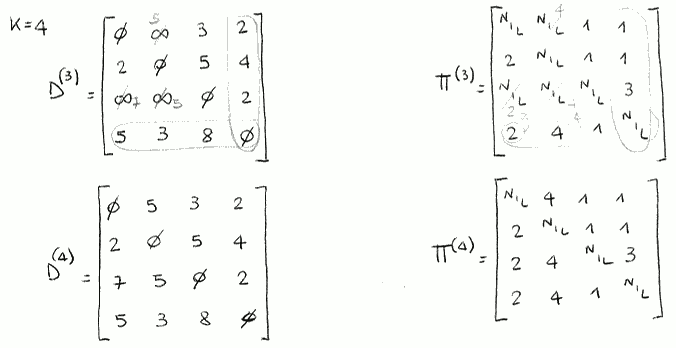 K=4
D(3) = [ ∅ ∞ 3 2
2 ∅ 5 4
∞ ∞ ∅ 2
5 3 8 ∅ ]
5
7 5
Π(3) = [ NIL NIL 1 1
2 NIL 1 1
NIL NIL NIL 3
2 4 1 NIL ]
4
D(4) = [ ∅ 5 3 2
2 ∅ 5 4
7 5 ∅ 2
5 3 8 ∅ ]
Π(4) = [ NIL 4 1 1
2 NIL 1 1
2 4 NIL 3
2 4 1 NIL ]